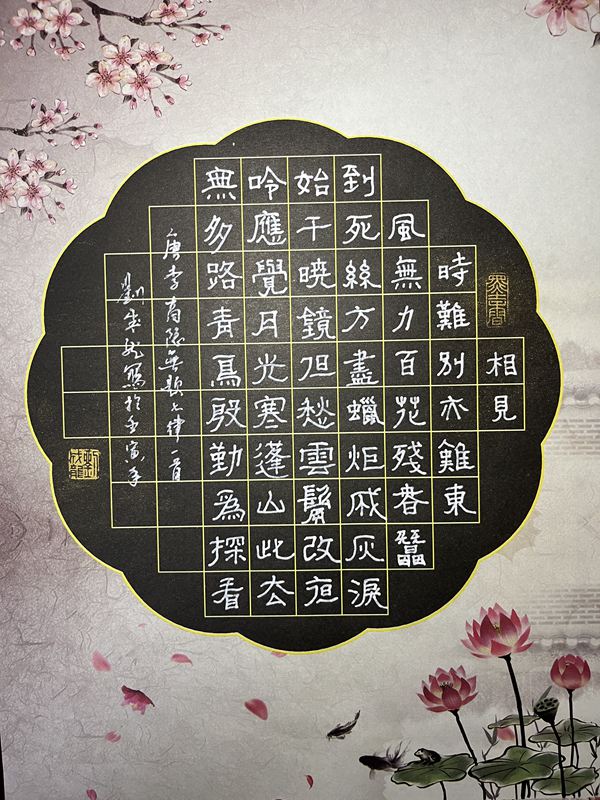 相見
時難別亦難東
風無力百花殘春蠶
到死絲方盡蠟炬成灰淚
始干曉鏡但愁雲鬢改夜
吟應覺月光寒蓬山此去
無多路青鳥殷勤爲探看
唐李商隱無題七律一首
劉成龍寫於壬寅年
劉成龍